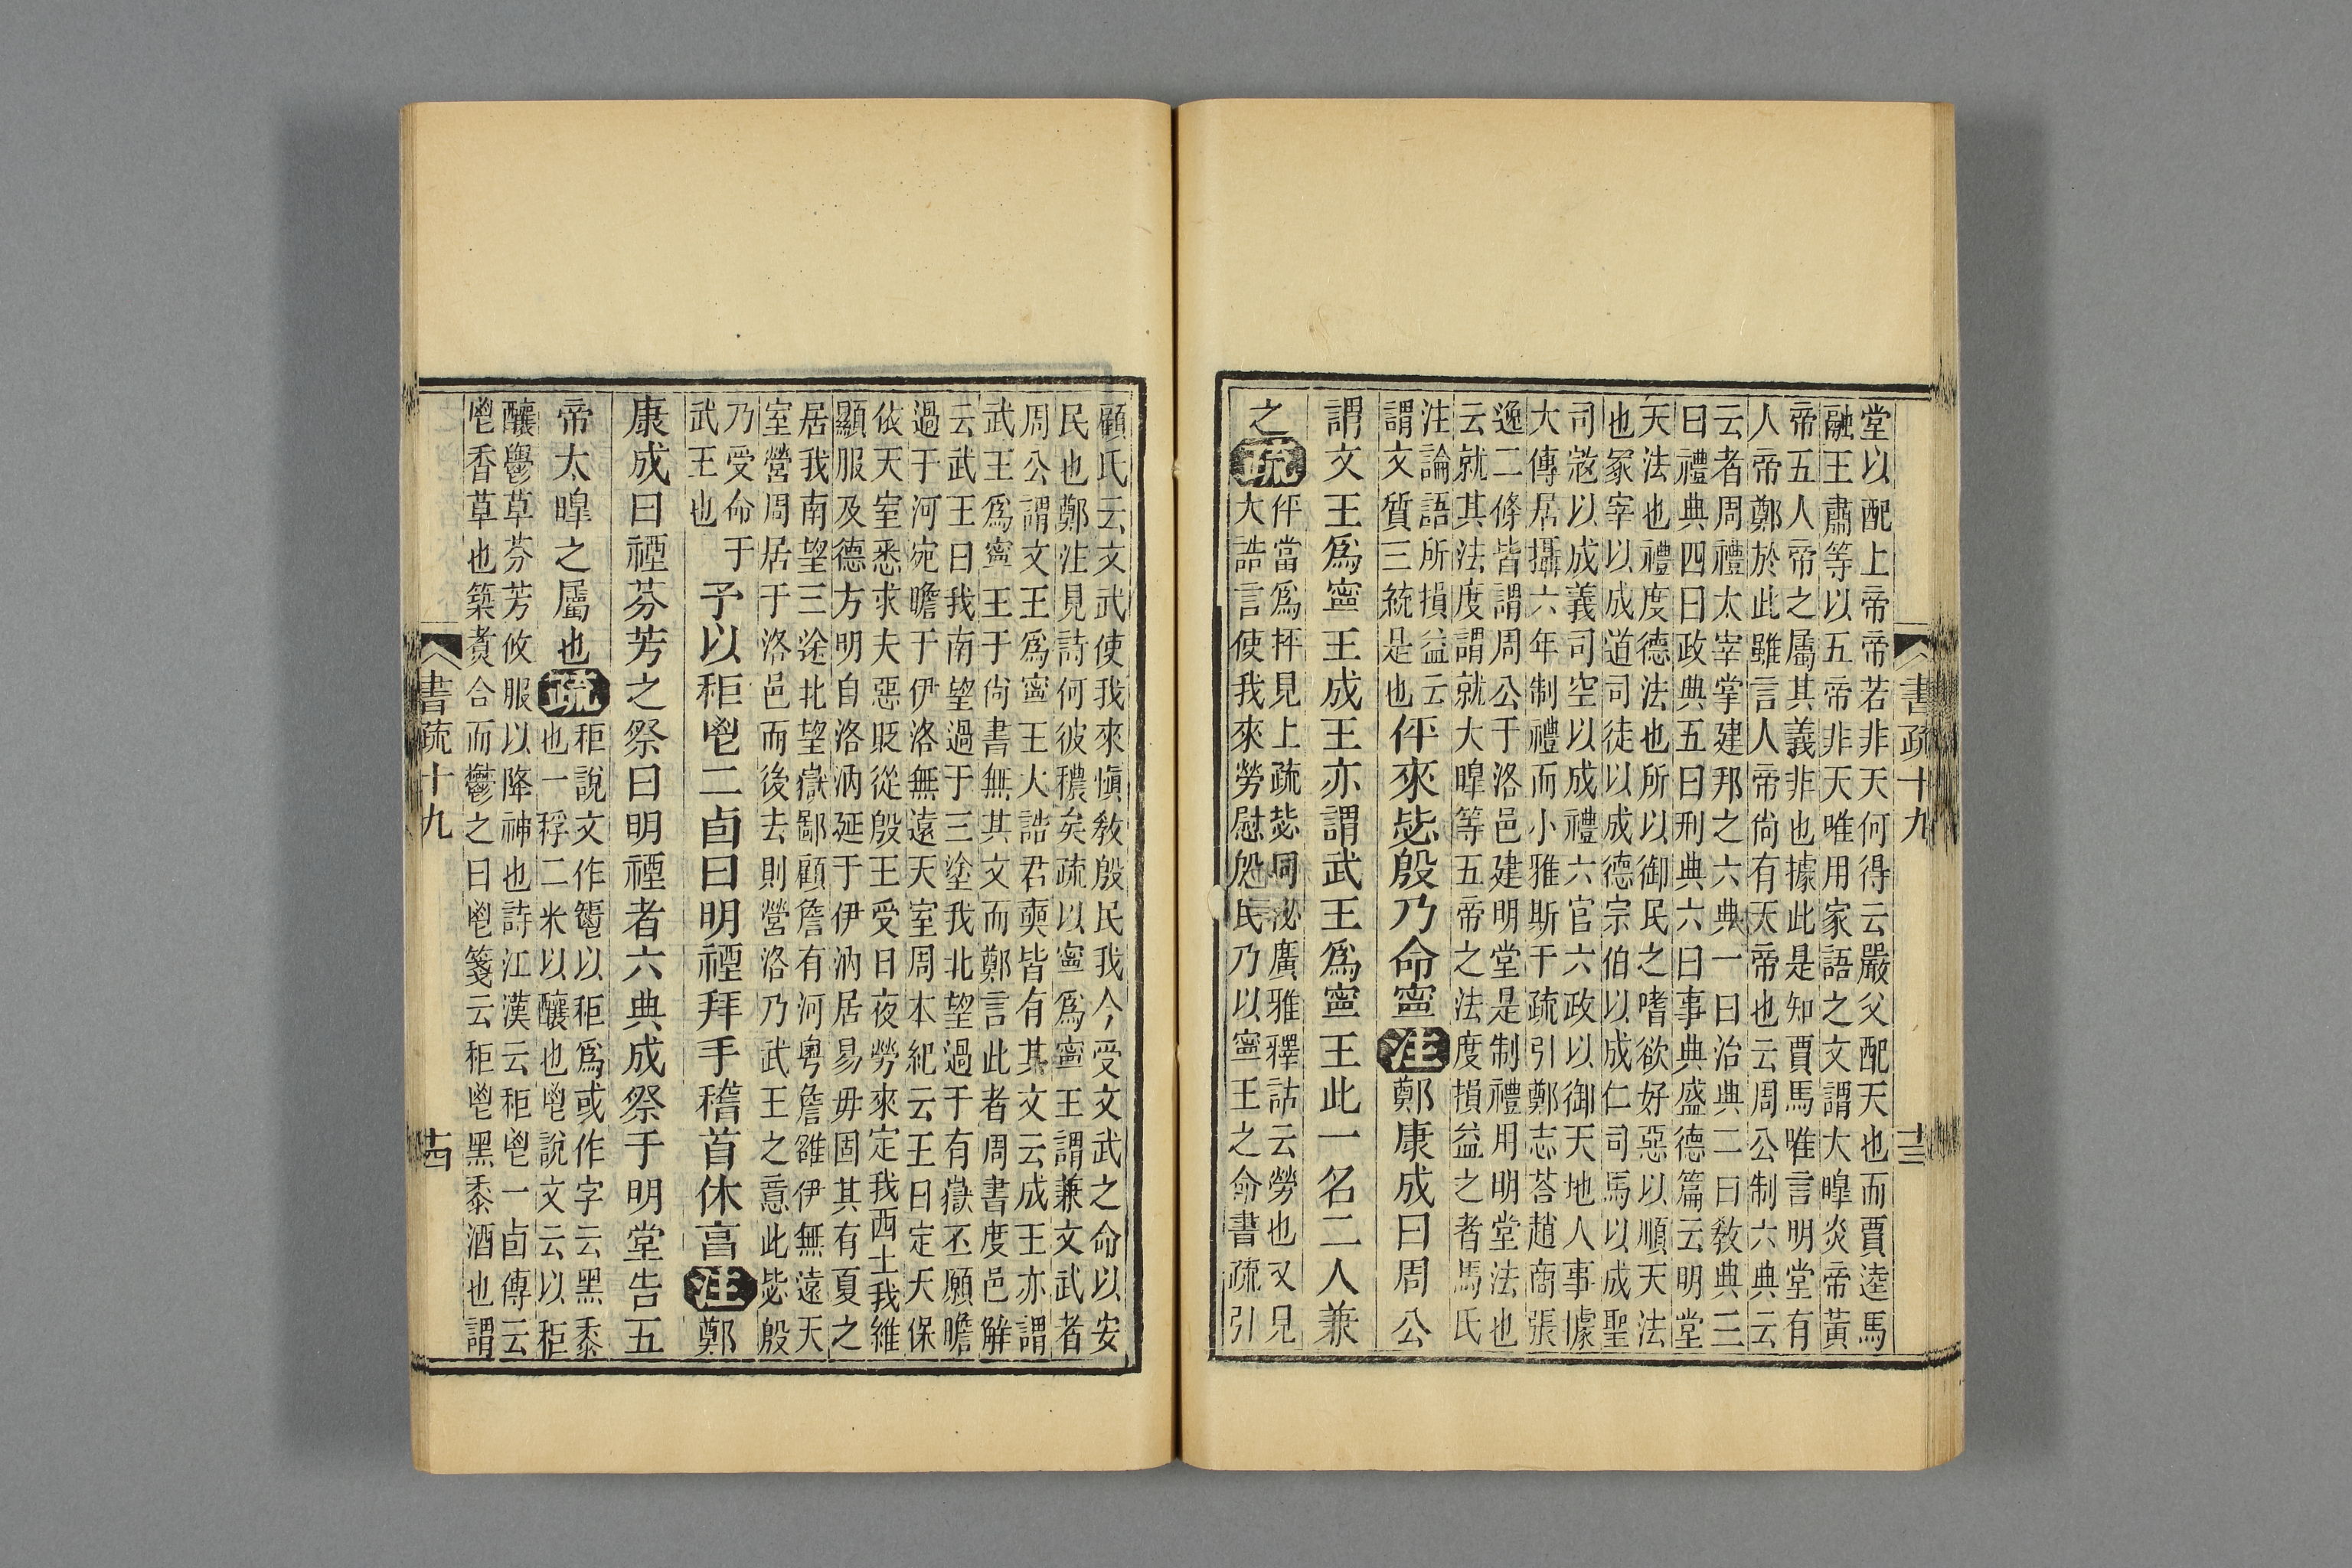 堂以配上帝帝若非天何得云嚴父配天也而賈逵馬
融王肅等以五帝非天唯用家語之文謂大暭炎帝黃
帝五人帝之屬其義非也據此是知賈馬唯言明堂有
人帝鄭於此雖言人帝尙有天帝也云周公制六典云
云者周禮太宰掌建邦之六典一曰治典二曰敎典三
曰禮典四曰政典五曰刑典六曰事典盛德篇云明堂
天法也禮度德法也所以御民之嗜欲好惡以順天法
也冢宰以成道司徒以成德宗伯以成仁司馬以成聖
司寇以成義司空以成禮六官六政以御天地人事據
大傳居攝六年制禮而小雅斯干疏引鄭志荅趙商張
逸二條皆謂周公于洛邑建明堂是制禮用明堂法也
云就其法度謂就大暭等五帝之法度損益之者馬氏
注論語所損益云
謂文質三統是也
伻來毖殷乃命寧注鄭康成曰周公
謂文王爲寧王成王亦謂武王爲寧王此一名二人兼
之疏
伻當爲抨見上疏毖同泌廣雅釋詁云勞也又見
大誥言使我來勞慰殷民乃以寧王之命書疏引
書疏十九
十三
顧氏云文武使我來愼敎殷民我今受文武之命以安
民也鄭注見詩何彼穠矣疏以寧爲寧王謂兼文武者
周公謂文王爲寧王大誥君奭皆有其文云成王亦謂
武王爲寧王于尙書無其文而鄭言此者周書度邑解
云武王曰我南望過于三塗我北望過于有嶽丕願瞻
過于河宛瞻于伊洛無遠天室周本紀云王曰定天保
依天室悉求夫惡貶從殷王受日夜勞來定我西土我維
顯服及德方明自洛汭延于伊汭居易毋固其有夏之
居我南望三途北望嶽鄙顧詹有河粵詹雒伊無遠天
室營周居于洛邑而後去則營洛乃武王之意此毖殷
乃受命于
武王也
予以秬鬯二卣曰明禋拜手稽首休亯注鄭
康成曰禋芬芳之祭曰明禋者六典成祭于明堂告五
帝太暭之屬也疏
秬說文作𩰤以秬爲或作字云黑黍
也一稃二米以釀也鬯說文云以秬
釀鬱草芬芳攸服以降神也詩江漢云秬鬯一卣傳云
鬯香草也築煑合而鬱之曰鬯箋云秬鬯黑黍酒也謂
書疏十九
十四